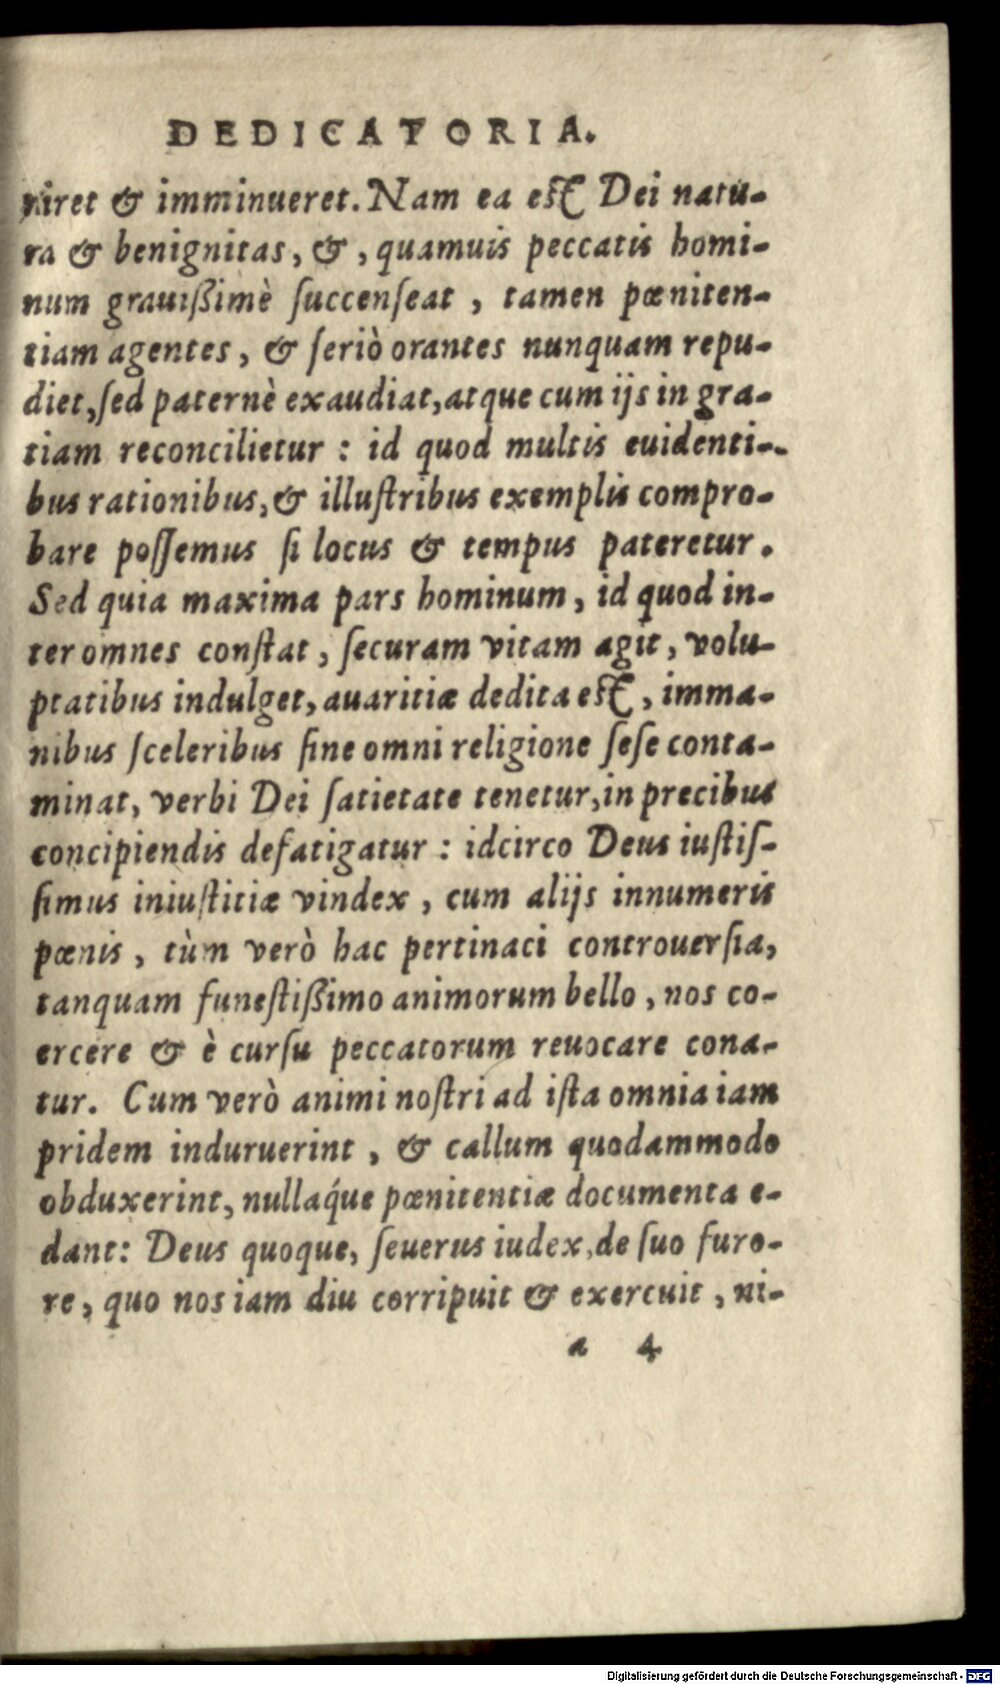 DEDICATORIA.
riret & imminueret. Nam ea est Dei natu-
ra & benignitas, &, quamuis peccatis homi-
num grauißimè ſuccenſeat, tamen pœniten-
tiam agentes, & ſeriò orantes nunquam repu-
diet, ſed paternè exaudiat, atque cum ijs in gra-
tiam reconcilietur: id quod multis euidenti-
bus rationibus, & illuſtribus exemplis compro-
bare poſſemus ſi locus & tempus pateretur.
Sed quia maxima pars hominum, id quod in-
ter omnes conſtat, ſecuram vitam agit, volu-
ptatibus indulget, auaritiæ dedita est, imma-
nibus ſceleribus ſine omni religione ſeſe conta-
minat, verbi Dei ſatietate tenetur, in precibus
concipiendis defatigatur: idcirco Deus iuſtiſ-
ſimus iniuſtitiæ vindex, cum alijs innumeris
pœnis, tùm verò hac pertinaci controuerſia,
tanquam funeſtißimo animorum bello, nos co-
ercere & è curſu peccatorum reuocare cona-
tur. Cum verò animi noſtri ad iſta omnia iam
pridem induruerint, & callum quodammodo
obduxerint, nullaq́ue pœnitentiæ documenta e-
dant: Deus quoque, ſeuerus iudex, de ſuo furo-
re, quo nos iam diu corripuit & exercuit, ni-
a 4
Digitalisierung gefördert durch die Deutsche Forschungsgemeinschaft - DFG